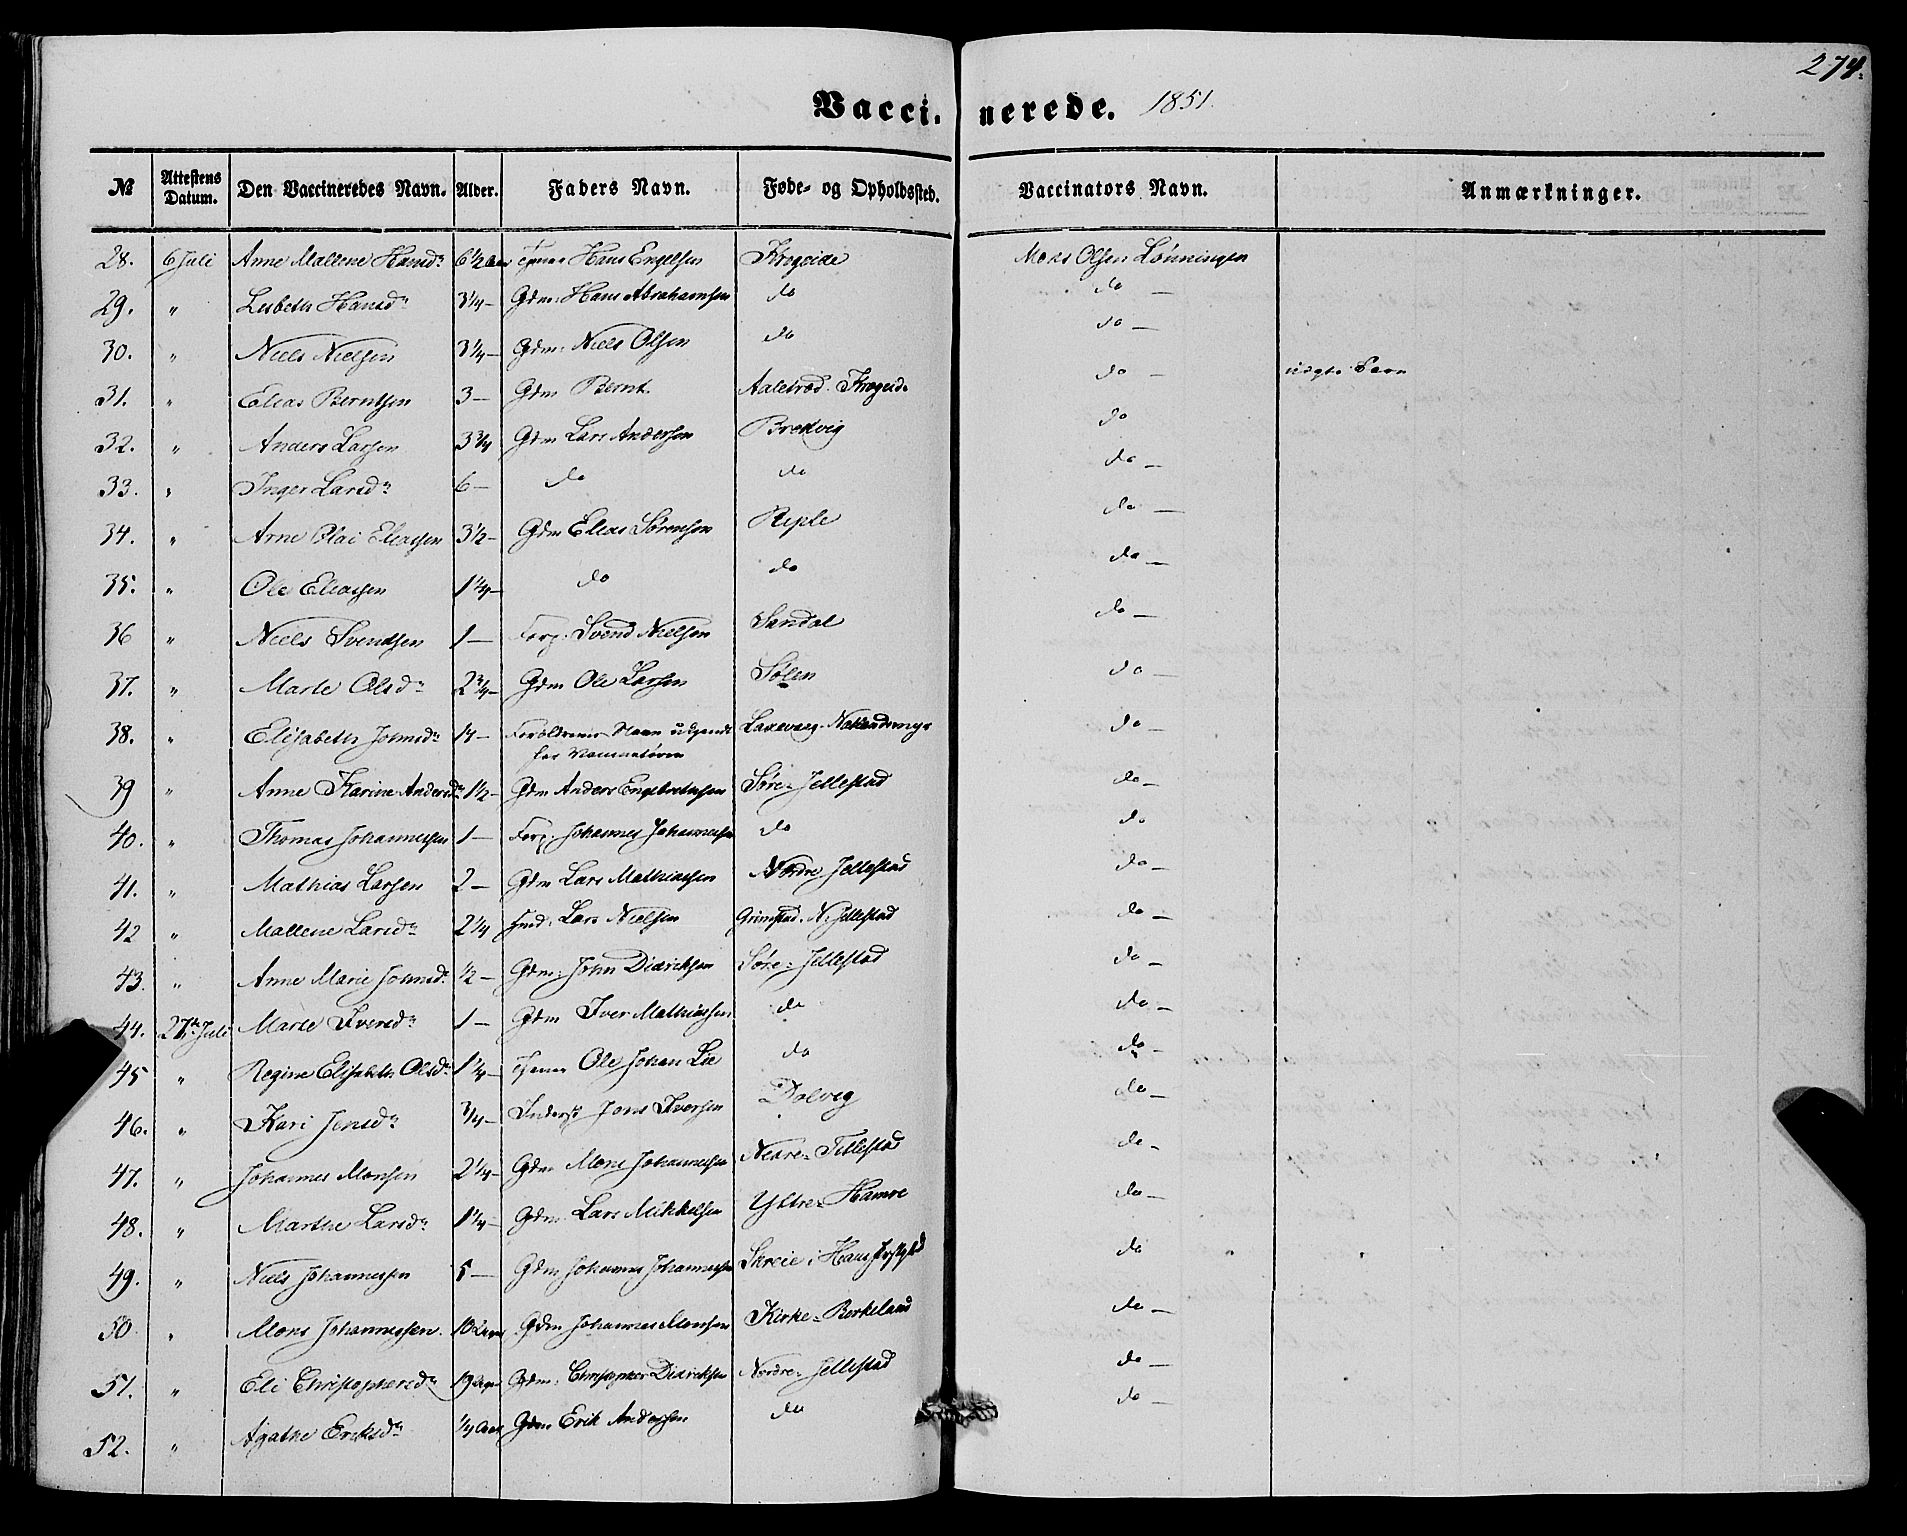 274.
Vaccinerede. 1851.
№ Attestens Datum. Den Vaccineredes Navn. Alder. Faders Navn. Føde- og Opholdssted. Vaccinators Navn. Anmærkninger.
28. 6 Juli Anne Mallene Hansd. 6½ Hans Engelsen Krogeide Mons Olsen Lønningen
29. " Lisbeth Hansd. 3¼ – Gdm: Hans Abrahamsen do do –
30. " Niels Nielsen 3¼ – Gdm: Niels Olsen do do –
31. " Elias Berntsen 3 – Gdm Bernt Krogeide do – uægte Barn
32. " Anders Larsen 3¾ Gdm Lars Andersen Bredvig do
33. " Inger Larsd. 6 – do do do –
34. " Arne Olai Eliassen 3½ – Gdm Elias Sørensen Reple do –
35. " Ole Eliassen 1¼ – do do do –
36 " Niels Svendsen 1 – Forp: Svend Nielsen Sandal do –
37. " Marte Olsd. 2¾ – Gdm Ole Larsen Sølen do –
38. " Elisabeth Johnsd. 14 – Forældrenes Navn ubekjendt for Vaccinatøren Laxevaag. do –
39 " Anne Karine Andersd. 1½ – Gdm Anders Engebretsen Søre-Jellestad do –
40. " Thomas Johannessen 1 – Forp: Johannes Johannessen do do
41. " Mathias Larsen 2 – Gdm Lars Mathiassen Nordre Jellestad do –
42 " Mallene Larsd. 2¼ Lars Nielsen Grimstad. N. Jellestad do –
43. " Anne Marie Johnsd. ½ – Gdm: John Didriksen Søre-Jellestad do –
44. 27de Juli Marte Iversd. 1 – Gdm Iver Mathiassen do do –
45 " Regine Elisabeth Olsd. 1¼ – Ole Johan Lie do do –
46. " Kari Jensd. ¾ – Inderst Jens Iversen Dolvig do –
47. " Johannes Monsen 2¼ – Gdm Mons Johannessen Nedre-Titlestad do –
48. " Marthe Larsd. 1¼ – Gdm: Lars Mikkelsen Ystre-Hamre do –
49. " Niels Johannessen 5 – Gdm Johannes Johannessen Skreie i Hans do
50 " Mons Johannessen. 10 Gdm Johannes Monsen Kirke-Berkeland do –
51. " Eli Christophersd. 19 Gdm: Christopher Didriksen Nordre-Jellestad do –
52. " Agathe Eriksd. ¼ Gdm Erik Andersen do do –